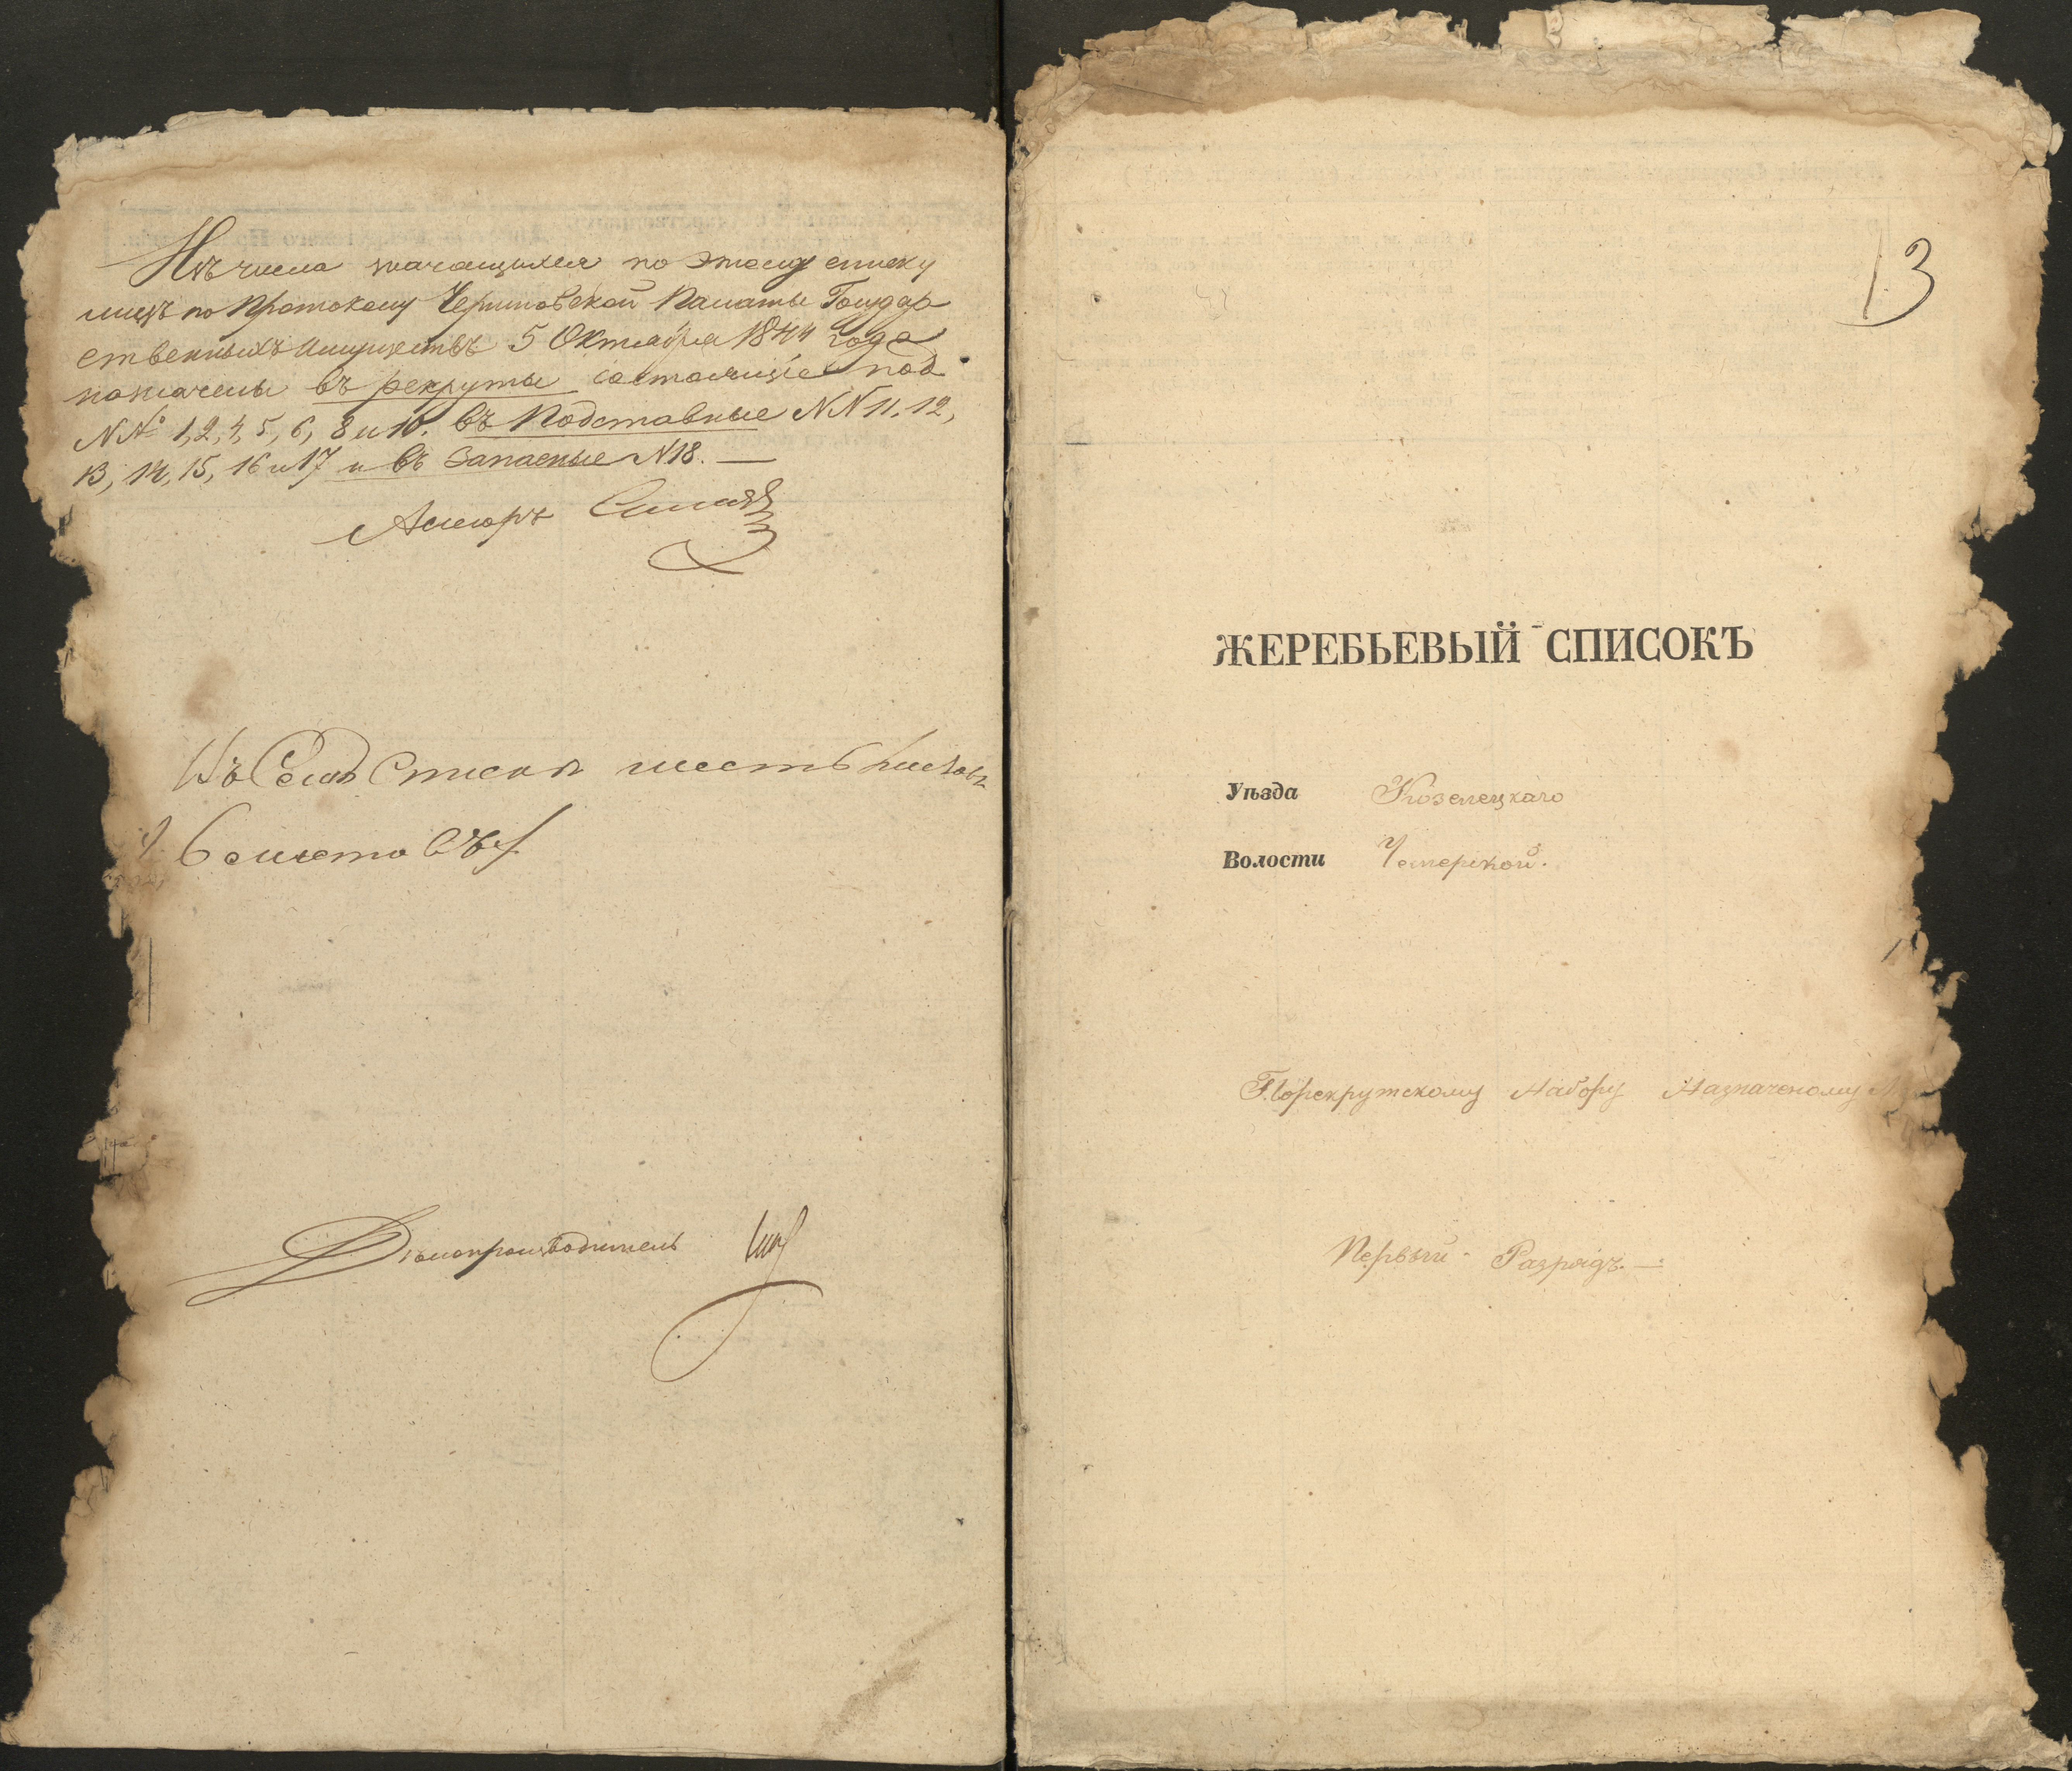 Изъ числа значащихся по этому списку
лицъ по протокому Черниговской Палаты Государ
ственныхъ имуществъ 5 Октября 1844 года
назначены въ рекруты состоящіе под
№№ 1, 2, 4, 5, 6, 8 и 10. въ Подставные №№ 11. 12,
13, 14, 15, 16 и 17 и въ Запасные №18. —
Асесоръ
Въ Семъ Списки шесть листовъ
6 листовъ
Делопроизводитель
13
ЖЕРЕБЬЕВЫЙ СПИСОКЪ
Уѣзда Козелецкаго
Волости Чемерской.
По рекрутскому Набору Назначеному
Первый Разрядъ. —